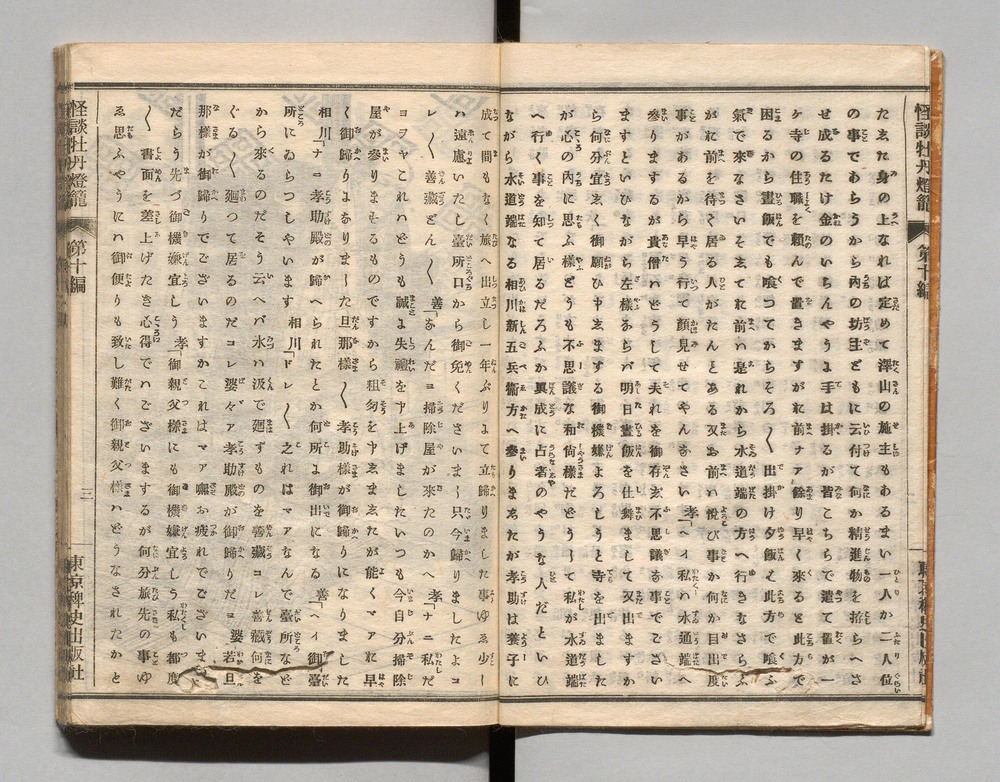 怪談牡丹燈籠
第十編
たゑた身の上なれば定めて澤山の施主もあるまい一人か二人位
の事であらうから内の坊主どもに云付て何か精進物を拵らへさ
せ成るたけ金のいらんやうよ手は掛るが皆こちらで遣て置が一
ケ寺の住職を頼んで置きますがお前ナア餘り早く來ると此方で
困るから晝飯でも喰つてからそろ〱出掛け夕飯ハ此方で喰ふ
氣で來なさいそゑてお前ハ是れから水道端の方へ行きなさらふ
がお前を待く居る人がたんとある又お前ハ悦び事か何か目出度
事があるから早う行て顔見せてやんなさい 孝「ヘイ私ハ水道端へ
參りまするが貴僧ハどうして夫れを御存ゑ不思議な事でござい
ますといひながら左樣ならバ明日晝飯を仕舞まして又出ますか
ら何分宜ゑく御願ひ申ゑまする御機嫌よろしうと寺を出ました
が心の内に思ふ樣どうも不思議な和尚樣だどうして私しが水道端
へ行く事を知て居るだろふか眞成に占者のやうな人だといひ
ながら水道端なる相川新五兵衞方へ參りまゑたが孝助は養子に
成て間もなく旅へ出立し一年ぶりよて立歸りました事ゆゑ少し
ハ遠慮いたし臺所口から御免くださいまし只今歸りましたヨコ
レ〱善藏どん〱 善「なんだヨ掃除屋が來たのかへ 孝「ナニ私だ
ヨヲヤこれハどうも誠よ失禮を申上げましたいつも今自分掃除
屋が參りまゑるものですから粗匆を申ゑまゑたが能くマア早
く御歸りよなりました旦那樣〱孝助樣が御歸りになりました
相川「ナニ孝助殿が歸へられたとか何所よ御出になる 善「ヘイ御臺
所にゐらつしやいます 相川「ドレ〱之れはマアなんで臺所など
から來るのだそう云ヘバ水ハ汲で廻ずものを善藏コレ善藏何を
ぐる〱廻つて居るのだコレ婆々ア孝助殿が御歸りだヨ 婆「若旦
那樣が御歸りでございますかこれはマア嘸お疲れでございませ
だらう先づ御機嫌宜しう 孝「御親父樣にも御機嫌宜しう私も都度
〱書面を差上げたき心得でハございまするが何分旅先の事ゆ
ゑ思ふやうにハ御便りも致し難く御親父樣ハどうなされたかと
怪談牡丹燈籠
第十編
三
東京稗史出版社